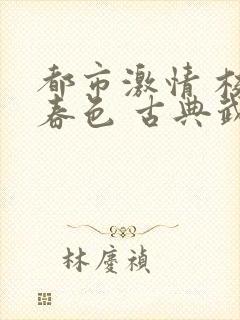 都市激情 校
春色 古典武
林慶禎